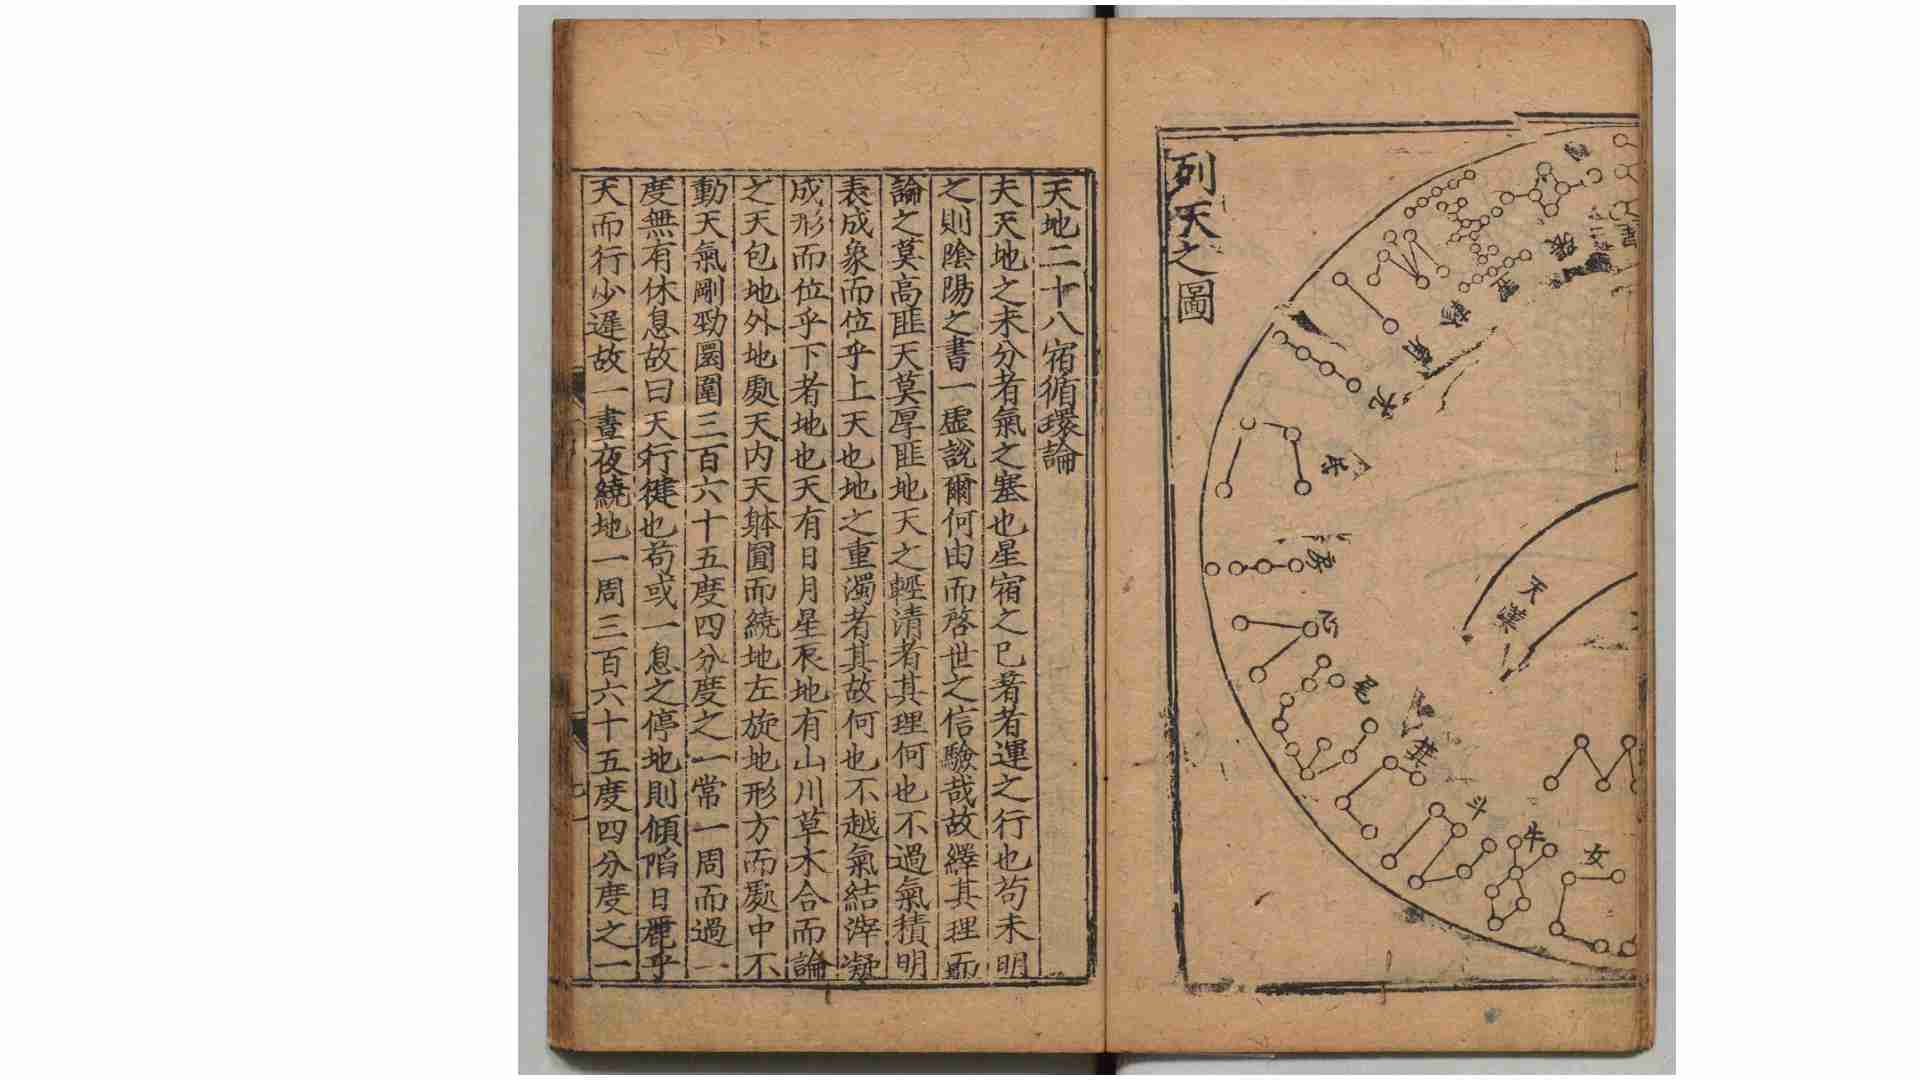 列天之圖
張
翌
軫
角
亢
氐
房
心
尾
箕
斗
牛
女
天漢
天地二十八宿循環論
夫天地之未分者氣之塞也星宿之已著者運之行也苟未明
之則陰陽之書一虛說爾何由而啓世之信驗哉故繹其理而
論之莫高匪天莫厚匪地天之輕清者其理何也不過氣積明
表成象而位乎上天也地之重濁者其故何也不越氣結滓凝
成形而位乎下者地也天有日月星辰地有山川草木合而論
之天包地外地處天内天躰圓而繞地左旋地形方而處中不
動天氣剛勁圜圍三百六十五度四分度之一常一周而過一
度無有休息故曰天行健也苟或一息之停地則傾陷日麗乎
天而行少遲故一晝夜繞地一周三百六十五度四分度之一